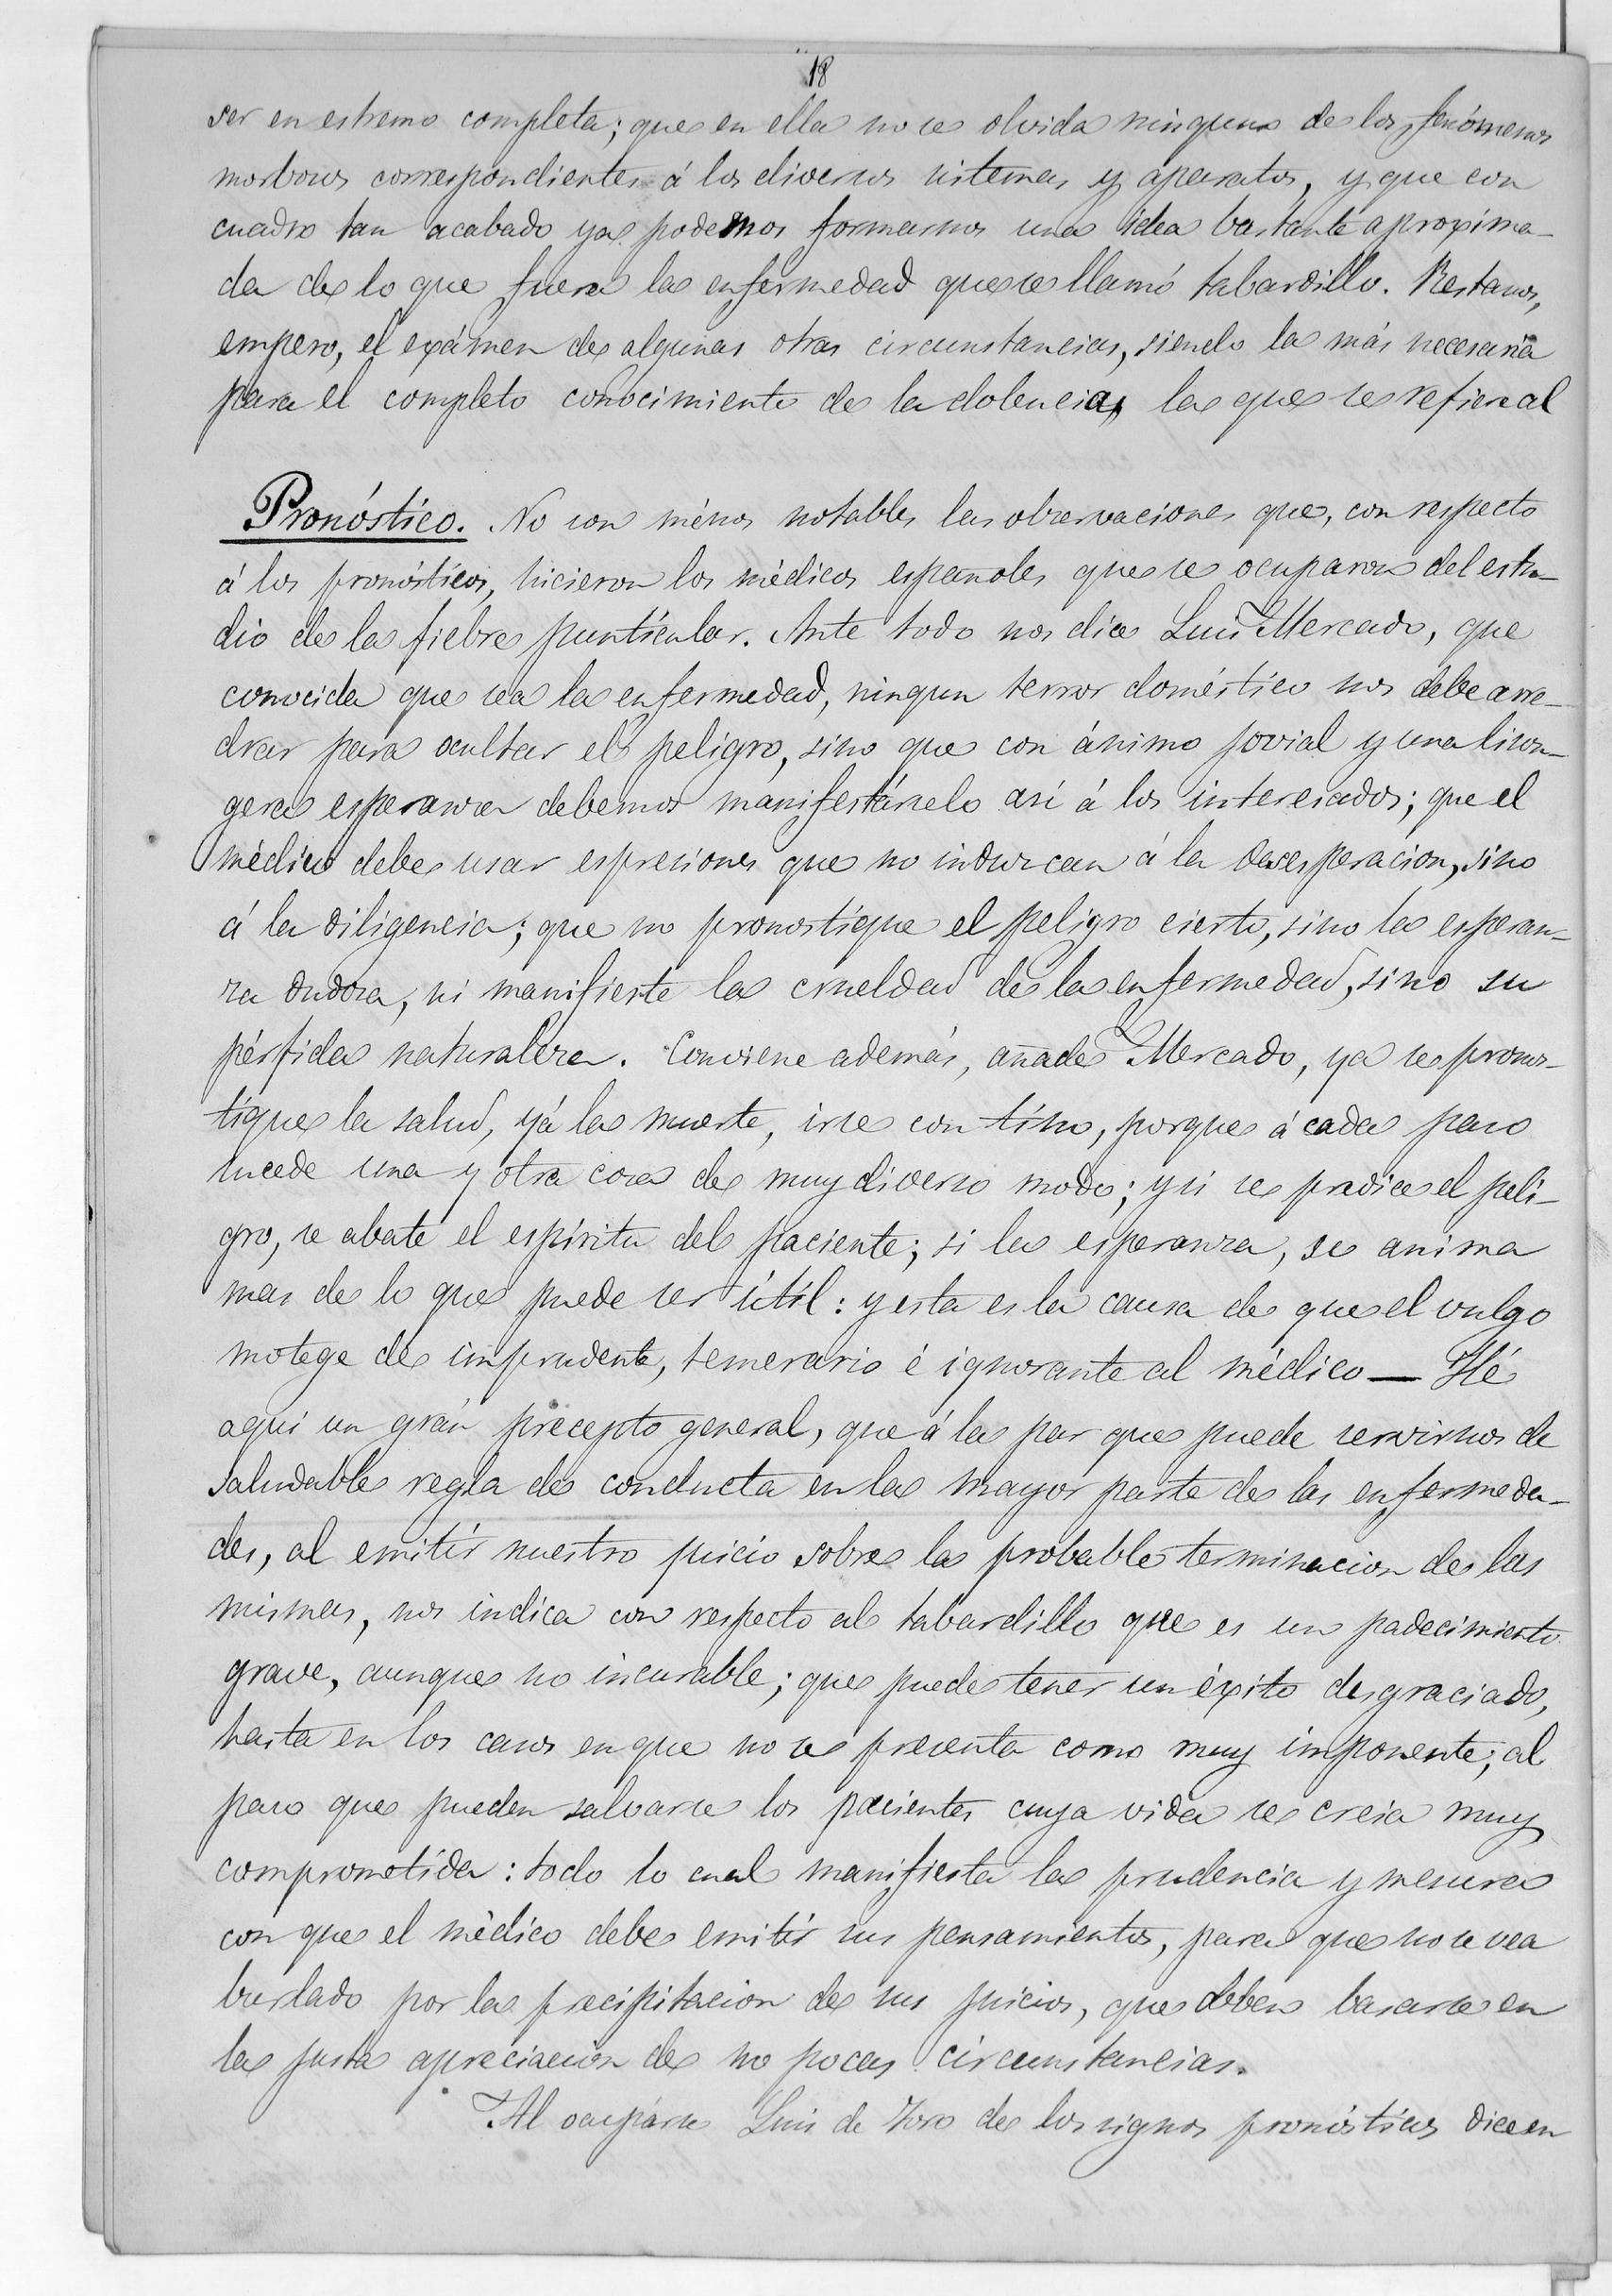 18
ser en estremo completa; que en ella no se olvida ninguno de los fenómenos
morbosos correspondientes á los diversos sistemas y aparatos, y que con
cuadro tan acabado ya podemos formarnos una idea bastante aproxima-
da de lo que fuera la enfermedad que se llamó tabardillo. Restanos,
empero, el exámen de algunas otras circunstancias, siendo la más necesaria
para el completo conocimiento de la dolencia, la que se refiere al
Pronóstico. No son ménos notables las observaciones que, con respecto
á los pronósticos, hicieron los médicos españoles que se ocuparon del estu-
dio de la fiebre puntícular. Ante todo nos dice Luis Mercado, que
conocida que sea la enfermedad, ningun terror doméstico nos debe arre-
drar para ocultar el peligro, sino que con ánimo jovial y una lison-
gera esperanza debemos manifestárselo así á los interesados; que el
médico debe usar espresiones que no induzcan á la desesperacion, sino
á la diligencia; que no pronostique el peligro cierto, sino la esperan-
za dudosa, ni manifieste la crueldad de la enfermedad, sino su
pérfida naturaleza. Conviene además, añade Mercado, ya se pronos-
tique la salud, yá la muerte, irse con tino, porque á cada paso
sucede una y otra cosa de muy diverso modo; y si se predice el peli-
gro, se abate el espíritu del paciente; si la esperanza, se anima
mas de lo que puede ser útil: y esta es la causa de que el vulgo
motege de imprudente, temerario é ignorante al médico — Hé
aqui un grán precepto general, que á la par que puede servirnos de
saludable regla de conducta en la mayor parte de las enfermeda-
des, al emitir nuestro juicio sobre la probable terminacion de las
mismas, nos indica con respecto al tabardillo que es un padecimiento
grave, aunque no incurable; que puede tener un éxito desgraciado,
hasta en los casos en que no se presenta como muy imponente; al
paso que pueden salvarse los pacientes cuya vida se creia muy
comprometida: todo lo cual manifiesta la prudencia y mesura
con que el médico debe emitir sus pensamientos, para que no se vea
burlado por la precipitacion de sus juicios, que deben basarse en
la justa apreciacion de no pocas circunstancias.
Al ocuparse Luis de Toro de los signos pronósticos dice en